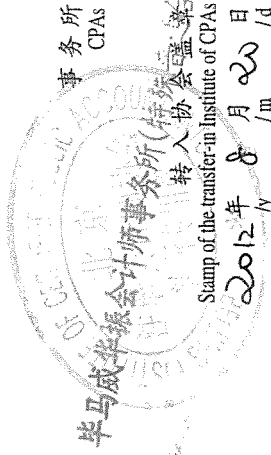 事务所
CPAs
毕马威华振会计师事务所(特殊
转入协会盖章
Stamp of the transfer-in Institute of CPAs
2012年8月20日
/y /m /d